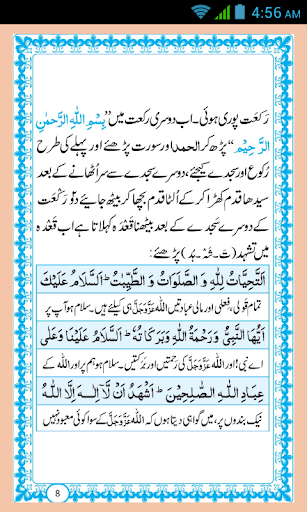 4:56 AM
رَکعَت پوری ہوئی۔ اب دوسری رکعت میں ”بِسْمِ اللّٰہِ الرَّحْمٰنِ
الرَّحِیْمِ“ پڑھ کر الحمد اور سورت پڑھئے اور پہلے کی طرح
رُکوع اور سجدے کیجئے، دوسرے سجدے سے سر اُٹھانے کے بعد
سیدھا قدم کھڑا کر کے اُلٹا قدم بچھا کر بیٹھ جایئے دو رَکْعَت
کے دوسرے سجدے کے بعد بیٹھنا قَعْدَہ کہلاتا ہے اب قَعْدہ
میں تشہد (تَ۔شَہْ۔ہُد) پڑھئے:
اَلتَّحِیَّاتُ لِلّٰہِ وَ الصَّلَوَاتُ وَ الطَّیِّبٰتُ ؕ اَلسَّلَامُ عَلَیْكَ
تمام قولی، فعلی اور مالی عبادتیں اللہ عَزَّوَجَلَّ ہی کیلئے ہیں۔ سلام ہو آپ پر
اَیُّھَا النَّبِیُّ وَرَحْمَۃُ اللّٰہِ وَبَرَکَاتُہٗ ؕ اَلسَّلَامُ عَلَیْنَا وَعَلٰی
اے نبی! اور اللہ عَزَّوَجَلَّ کی رحمتیں اور برکتیں۔ سلام ہو ہم پر اور اللہ کے
عِبَادِ اللّٰہِ الصّٰلِحِیْنَ ؕ اَشْھَدُ اَنْ لَّاۤ اِلٰـہَ اِلَّا اللّٰہُ
نیک بندوں پر، میں گواہی دیتا ہوں کہ اللہ عَزَّوَجَلَّ کے سوا کوئی معبود نہیں
8